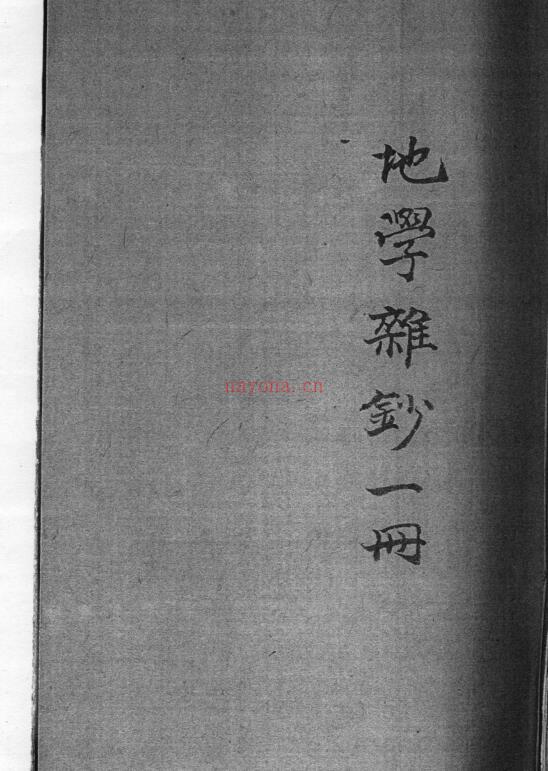 地學雜鈔一冊
nayona.cn